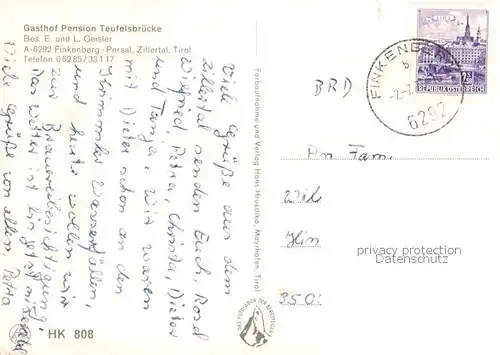 Gasthof Pension Teufelsbrücke
Bes. E. und L. Geisler
A-6292 Finkenberg - Persal, Zillertal, Tirol
Telefon 05285/33117
Viele Grüße aus dem
Zillertal senden Euch, Rosel
Wilfried, Petra, Christa, Dieter
und Tanja. Wir waren
mit Dieter schon an den
Krimmler Wasserfällen,
und heute wollen wir
zur Brauereibesichtigung.
Das Wetter ist
Viele Grüße von allen, Petra
HK 808
Farbaufnahme und Verlag Hans Hruschka, Mayrhofen, Tirol
DAS EDELKORN DER BERGFREUDE
BRD
FINKENBERG
b
-2.-7.
6292
2S
REPUBLIK ÖSTERREICH
An Fam.
Wil
Hin
350
privacy protection
Datenschutz